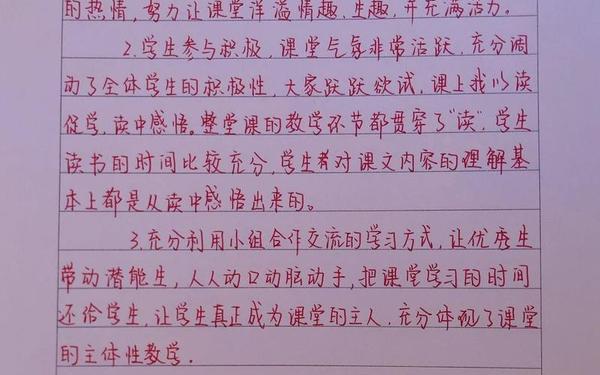 的热情,努力让课堂洋溢情趣、生趣,并充满活力。
2.学生参与积极,课堂气氛非常活跃,充分调
动了全体学生的积极性,大家跃跃欲试,课上我以读
促学,读中感悟。整堂课的教学环节都贯穿了"读",学生
读书的时间比较充分,学生者对课文内容的理解基
本上都是从读中感悟出来的。
3.充分利用小组合作交流的学习方式,让优秀生
带动潜能生,人人动口动脑动手,把课堂学习的时间
还给学生,让学生真正成为课堂的主人,充分体现了课堂
的主体性教学.